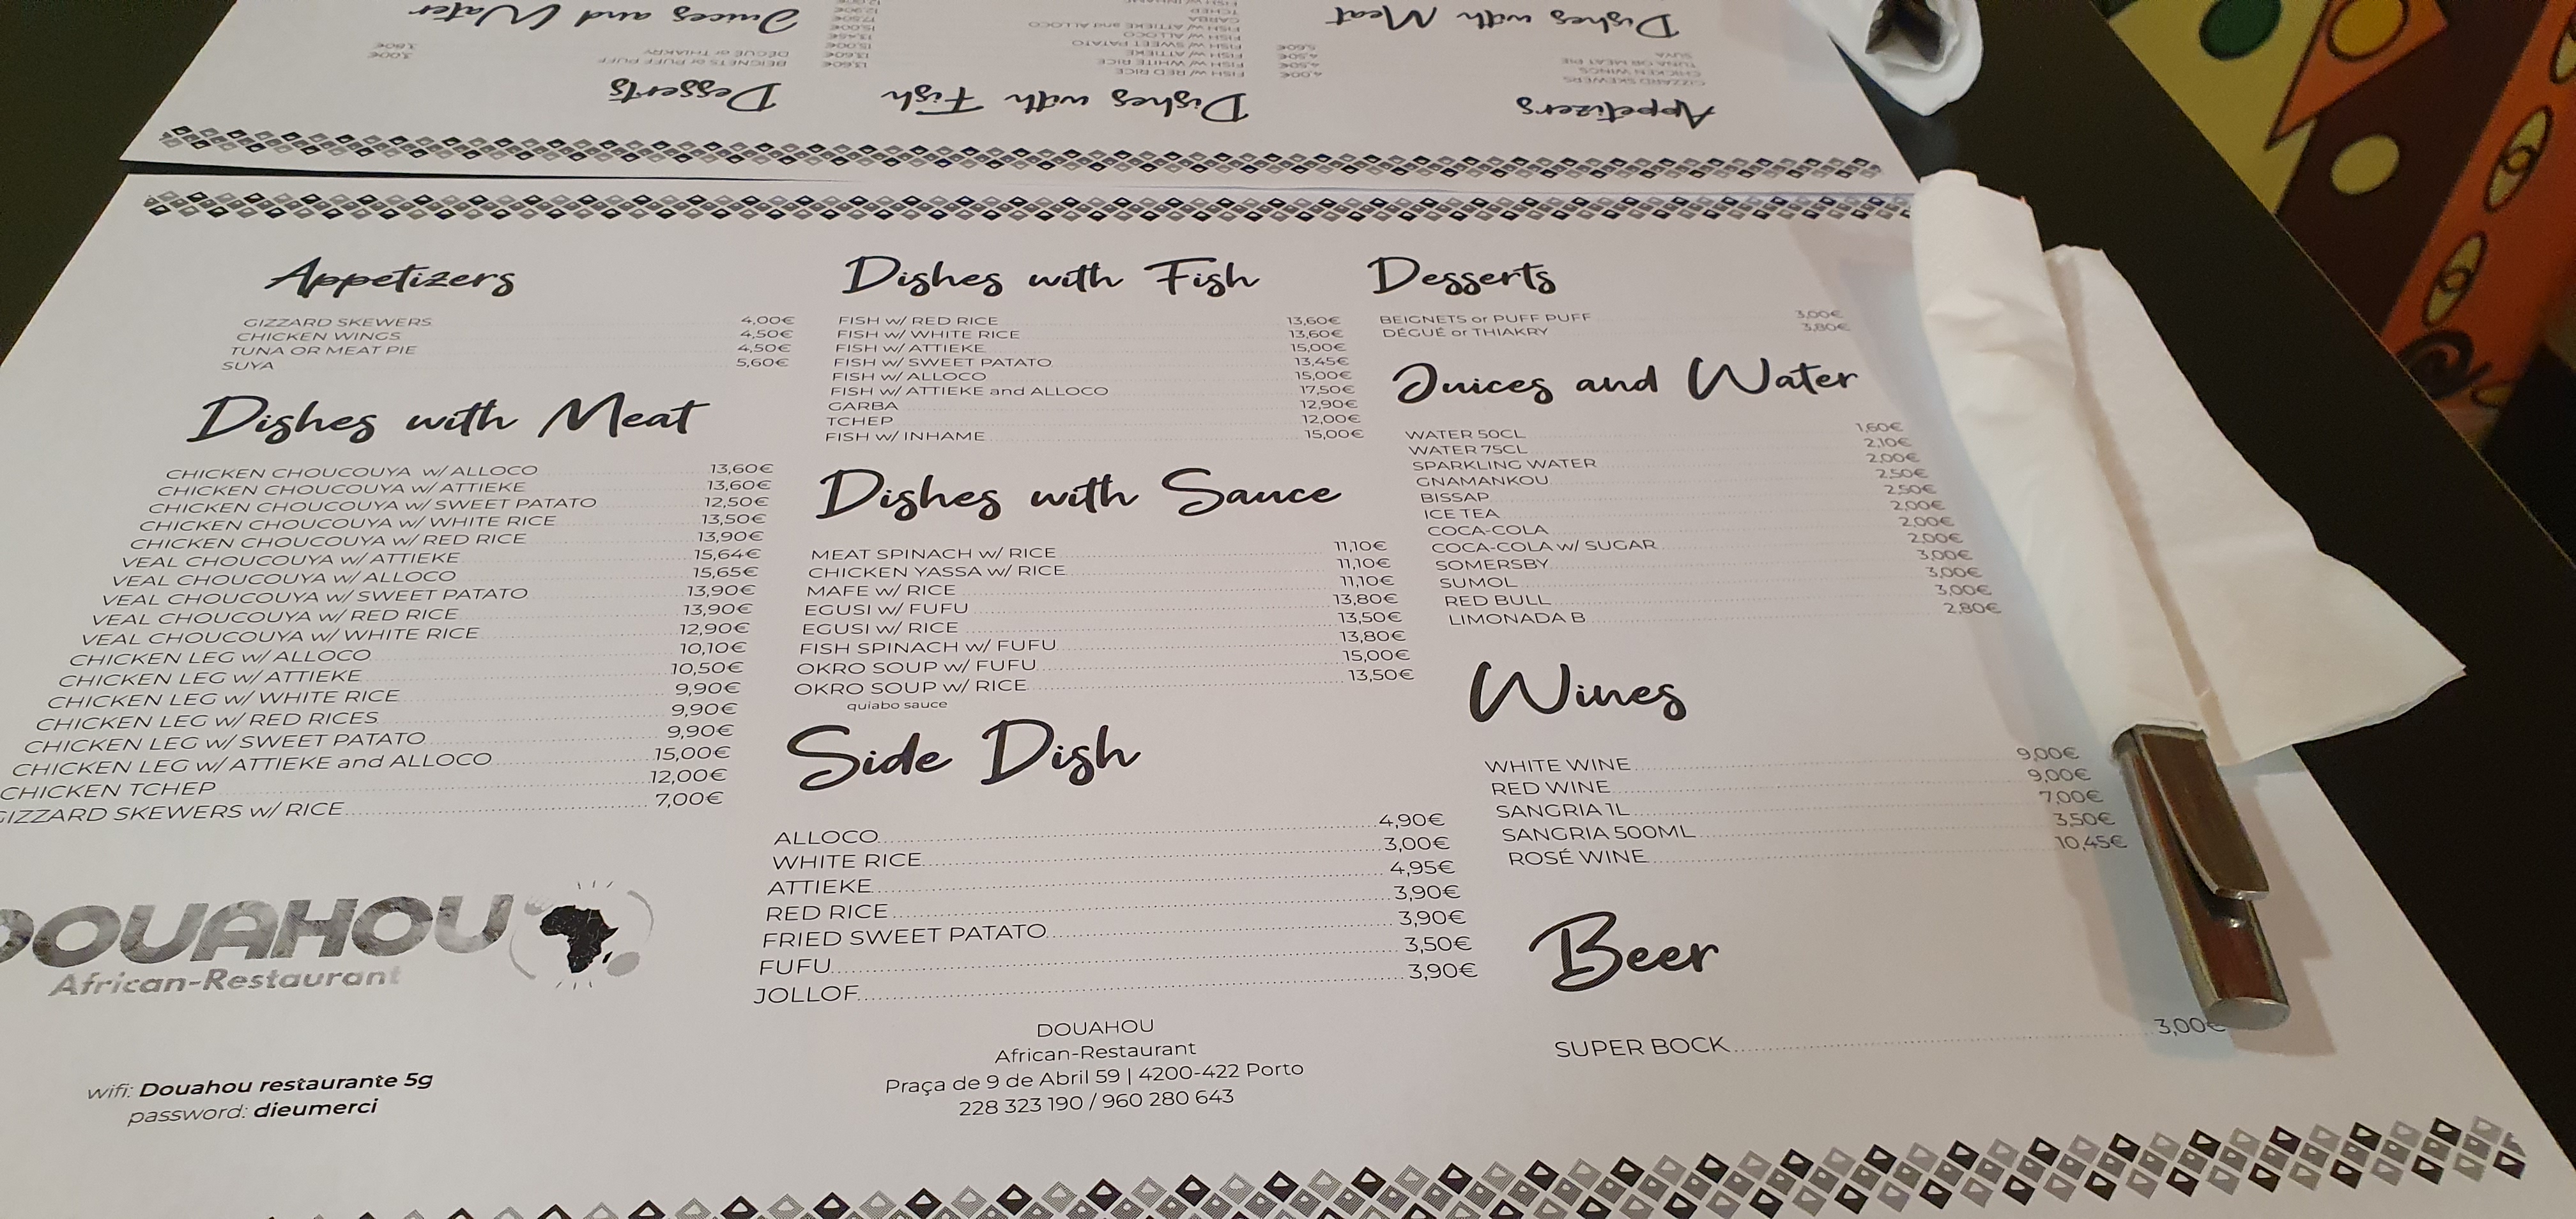 Juices and Water
Desserts
BEIGNETS or PUFF PUFF 3,00€
DÉGUÉ or THIAKRY 3,80€
Dishes with Fish
FISH w/ RED RICE 13,60€
FISH w/ WHITE RICE 13,60€
FISH w/ ATTIEKE 15,00€
FISH w/ SWEET PATATO 13,45€
FISH w/ ALLOCO 15,00€
FISH w/ ATTIEKE and ALLOCO 17,50€
GARBA 12,90€
TCHEP 12,00€
Dishes with Meat
Appetizers
GIZZARD SKEWERS 4,00€
CHICKEN WINGS 4,50€
TUNA OR MEAT PIE 4,50€
SUYA 5,60€
Appetizers
GIZZARD SKEWERS 4,00€
CHICKEN WINGS 4,50€
TUNA OR MEAT PIE 4,50€
SUYA 5,60€
Dishes with Meat
CHICKEN CHOUCOUYA w/ ALLOCO 13,60€
CHICKEN CHOUCOUYA w/ ATTIEKE 13,60€
CHICKEN CHOUCOUYA w/ SWEET PATATO 12,50€
CHICKEN CHOUCOUYA w/ WHITE RICE 13,50€
CHICKEN CHOUCOUYA w/ RED RICE 13,90€
VEAL CHOUCOUYA w/ ATTIEKE 15,64€
VEAL CHOUCOUYA w/ ALLOCO 15,65€
VEAL CHOUCOUYA w/ SWEET PATATO 13,90€
VEAL CHOUCOUYA w/ RED RICE 13,90€
VEAL CHOUCOUYA w/ WHITE RICE 12,90€
CHICKEN LEG w/ ALLOCO 10,10€
CHICKEN LEG w/ ATTIEKE 10,50€
CHICKEN LEG w/ WHITE RICE 9,90€
CHICKEN LEG w/ RED RICES 9,90€
CHICKEN LEG w/ SWEET PATATO 9,90€
CHICKEN LEG w/ ATTIEKE and ALLOCO 15,00€
CHICKEN TCHEP 12,00€
GIZZARD SKEWERS w/ RICE 7,00€
DOUAHOU
African-Restaurant
wifi: Douahou restaurante 5g
password: dieumerci
Dishes with Fish
FISH w/ RED RICE 13,60€
FISH w/ WHITE RICE 13,60€
FISH w/ ATTIEKE 15,00€
FISH w/ SWEET PATATO 13,45€
FISH w/ ALLOCO 15,00€
FISH w/ ATTIEKE and ALLOCO 17,50€
GARBA 12,90€
TCHEP 12,00€
FISH w/ INHAME 15,00€
Dishes with Sauce
MEAT SPINACH w/ RICE 11,10€
CHICKEN YASSA w/ RICE 11,10€
MAFE w/ RICE 11,10€
EGUSI w/ FUFU 13,80€
EGUSI w/ RICE 13,50€
FISH SPINACH w/ FUFU 13,80€
OKRO SOUP w/ FUFU 15,00€
OKRO SOUP w/ RICE 13,50€
quiabo sauce
Side Dish
ALLOCO 4,90€
WHITE RICE 3,00€
ATTIEKE 4,95€
RED RICE 3,90€
FRIED SWEET PATATO 3,90€
FUFU 3,50€
JOLLOF 3,90€
DOUAHOU
African-Restaurant
Praça de 9 de Abril 59 | 4200-422 Porto
228 323 190 / 960 280 643
Desserts
BEIGNETS or PUFF PUFF 3,00€
DÉGUÉ or THIAKRY 3,80€
Juices and Water
WATER 50CL 1,60€
WATER 75CL 2,10€
SPARKLING WATER 2,00€
GNAMANKOU 2,50€
BISSAP 2,50€
ICE TEA 2,00€
COCA-COLA 2,00€
COCA-COLA w/ SUGAR 2,00€
SOMERSBY 3,00€
SUMOL 3,00€
RED BULL 3,00€
LIMONADA B 2,80€
Wines
WHITE WINE 9,00€
RED WINE 9,00€
SANGRIA 1L 7,00€
SANGRIA 500ML 3,50€
ROSÉ WINE 10,45€
Beer
SUPER BOCK 3,00€